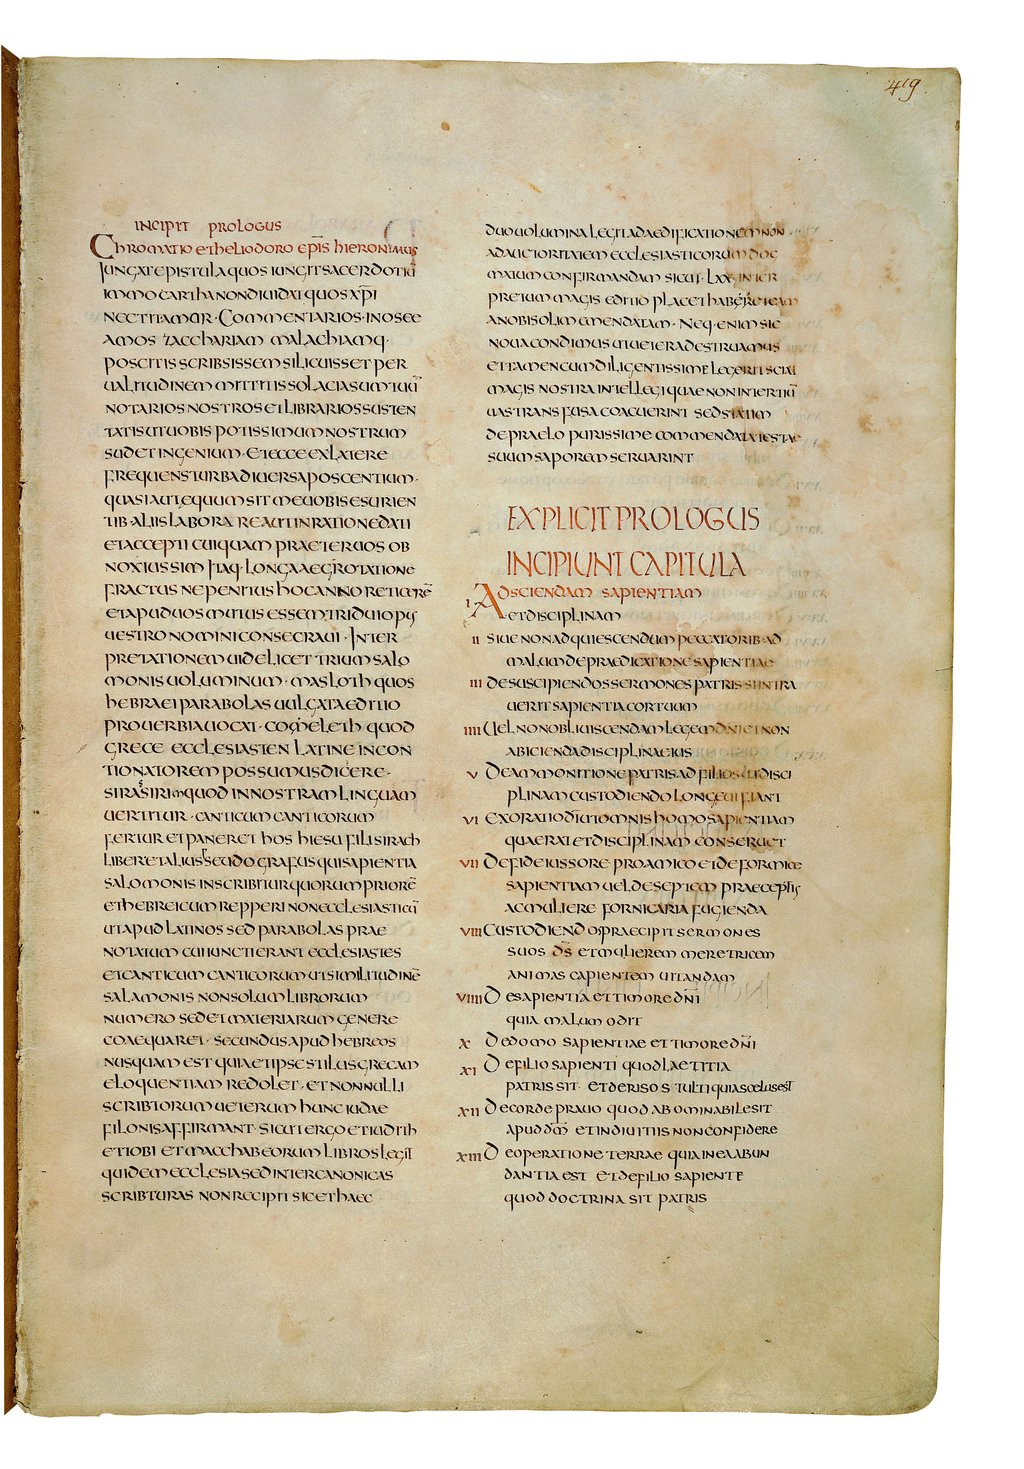 419
INCIPIT PROLOGUS
CHROMATIO ET HELIODORO EPIS HIERONIMUS
IUNGAT EPISTULA QUOS IUNGIT SACERDOTIU
IMMO CARTHA NON DIUIDAT QUOS XPI
NECTIT AMOR · COMMENTARIOS · IN OSEE
AMOS ZACCHARIAM MALACHIAM Q ·
POSCITIS SCRIBSISSEM SI LICUISSET PER
UALITUDINEM MITTITIS SOLACIA SUMTUU
NOTARIOS NOSTROS ET LIBRARIOS SUSTEN
TATIS UT UOBIS POTISSIMUM NOSTRUM
SUDET INGENIUM · ET ECCE EX LATERE
FREQUENS TURBA DIUERSA POSCENTIUM ·
QUASI AUT EQUUM SIT ME UOBIS ESURIEN
TIB · ALIIS LABORARE AUT IN RATIONE DATI
ET ACCEPTI CUIQUAM PRAETER UOS OB
NOXIUS SIM ITAQ · LONGA AEGROTATIONE
FRACTUS NE PENITUS HOC ANNO RETICERE
ET APUD UOS MUTUS ESSEM TRIDUI OPUS
UESTRO NOMINI CONSECRAUI · INTER
PRETATIONEM UIDELICET TRIUM SALO
MONIS UOLUMINUM · MASLOTH QUOS
HEBRAEI PARABOLAS UULGATA EDITIO
PROUERBIA UOCAT · COHELETH QUOD
GRECE ECCLESIASTEN LATINE IN CON
TIONATOREM POSSUMUS DICERE ·
SIRASSIRIM QUOD IN NOSTRAM LINGUAM
UERTITUR · CANTICUM CANTICORUM
FERTUR ET PANERETHOS HIESU FILI SIRACH
LIBER ET ALIUS PSEUDOGRAFUS QUI SAPIENTIA
SALOMONIS INSCRIBITUR QUORUM PRIORE
ET HEBREICUM REPPERI NON ECCLESIASTICU
UT APUD LATINOS SED PARABOLAS PRAE
NOTATUM CUI IUNCTI ERANT ECCLESIASTES
ET CANTICUM CANTICORUM UT SIMILITUDINE
SALAMONIS NON SOLUM LIBRORUM
NUMERO SED ET MATERIARUM GENERE
COAEQUARET · SECUNDUS APUD HEBREOS
NUSQUAM EST QUIA ET IPSE STILUS GRECAM
ELOQUENTIAM REDOLET · ET NONNULLI
SCRIBTORUM UETERUM HUNC IUDAE
FILONIS AFFIRMANT · SICUT ERGO ET IUDITH
ET TOBI ET MACCHABEORUM LIBROS LEGIT
QUIDEM ECCLESIA SED INTER CANONICAS
SCRIBTURAS NON RECIPIT SIC ET HAEC
DUO UOLUMINA LEGIT AD AEDIFICATIONEM NON
AD AUCTORITATEM ECCLESIASTICORUM DOC
MATUM CONFIRMANDAM SICUT · LXX INTER
PRETUM MAGIS EDITIO PLACET HABET ET EAM
A NOBIS OLIM EMENDATAM · NEQ · ENIM SIC
NOUA CONDIMUS UT UETERA DESTRUAMUS
ET TAMEN CUM DILIGENTISSIME LEGERIT SCIAT
MAGIS NOSTRA INTELLEGI QUAE NON IN TERTIU
UAS TRANSFUSA COACUERINT SED STATIM
DE PRAELO PURISSIME COMMENDATA TESTAE
SUUM SAPOREM SERUARINT
EXPLICIT PROLOGUS
INCIPIUNT CAPITULA
I AD SCIENDAM SAPIENTIAM
ET DISCIPLINAM
II SIUE NON ADQUIESCENDUM PECCATORIB · AD
MALUM DE PRAEDICATIONE SAPIENTIAE
III DE SUSCIPIENDOS SERMONES PATRIS SI INTRA
UERIT SAPIENTIA COR TUUM
IIII UEL NON OBLIUISCENDAM LEGEM DNI ET NON
ABICIENDA DISCIPLINA EIUS
V DE AMMONITIONE PATRIS AD FILIOS UT DISCI
PLINAM CUSTODIENDO LONGEUI FIANT
VI EXORATIO DI UT OMNIS HOMO SAPIENTIAM
QUAERAT ET DISCIPLINAM CONSERUET
VII DE FIDEIUSSORE PRO AMICO ET DE FORMICE
SAPIENTIAM UEL DE SEPTEM PRAECEPTIS
AC MULIERE FORNICARIA FUGIENDA
VIII CUSTODIENDO PRAECIPIT SERMONES
SUOS DS ET MULIEREM MERETRICEM
ANIMAS CAPIENTEM UITANDAM
VIIII DE SAPIENTIA ET TIMORE DNI
QUIA MALUM ODIT
X DE DOMO SAPIENTIAE ET TIMORE DNI
XI DE FILIO SAPIENTI QUOD LAETITIA
PATRIS SIT · ET DERISOS TULTI QUIA SCELUS EST
XII DE CORDE PRAUO QUOD ABOMINABILE SIT
APUD DM ET IN DIUITIIS NON CONFIDERE
XIII DE OPERATIONE TERRAE QUIA IN EA ABUN
DANTIA EST ET DE FILIO SAPIENTE
QUOD DOCTRINA SIT PATRIS